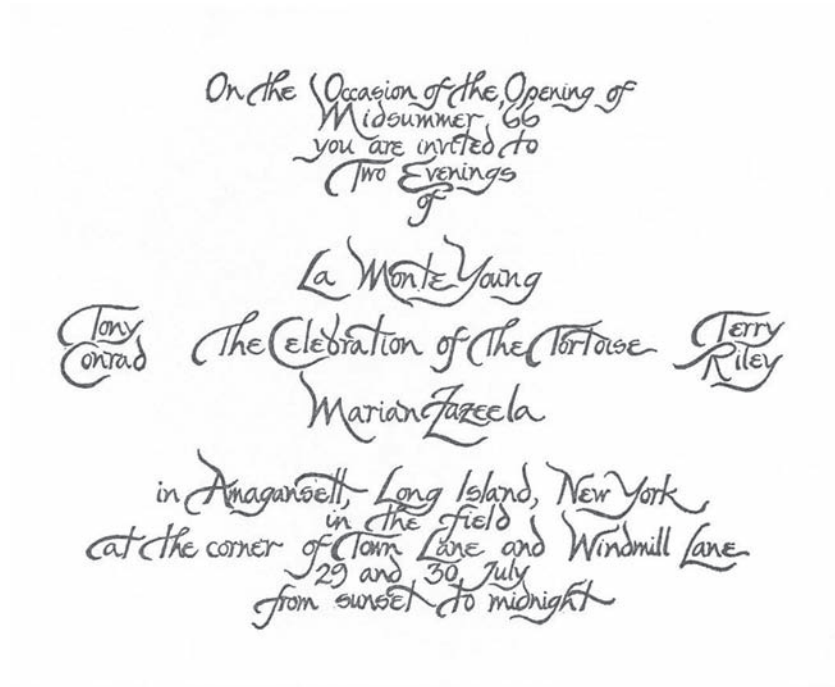 On the Occasion of the Opening of
Midsummer, 66
you are invited to
Two Evenings
of
La Monte Young
Tony
Conrad
The Celebration of The Tortoise
Terry
Riley
Marian Zazeela
in Amagansett, Long Island, New York,
in the field
at the corner of Town Lane and Windmill Lane
29 and 30 July
from sunset to midnight